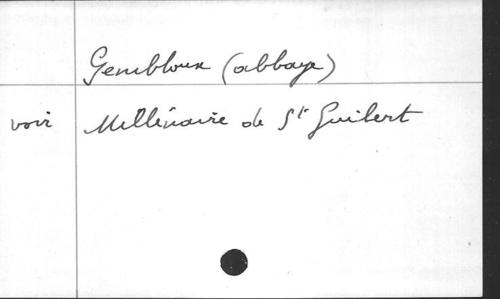 Gembloux (abbaye)
voir Millénaire de St Guibert